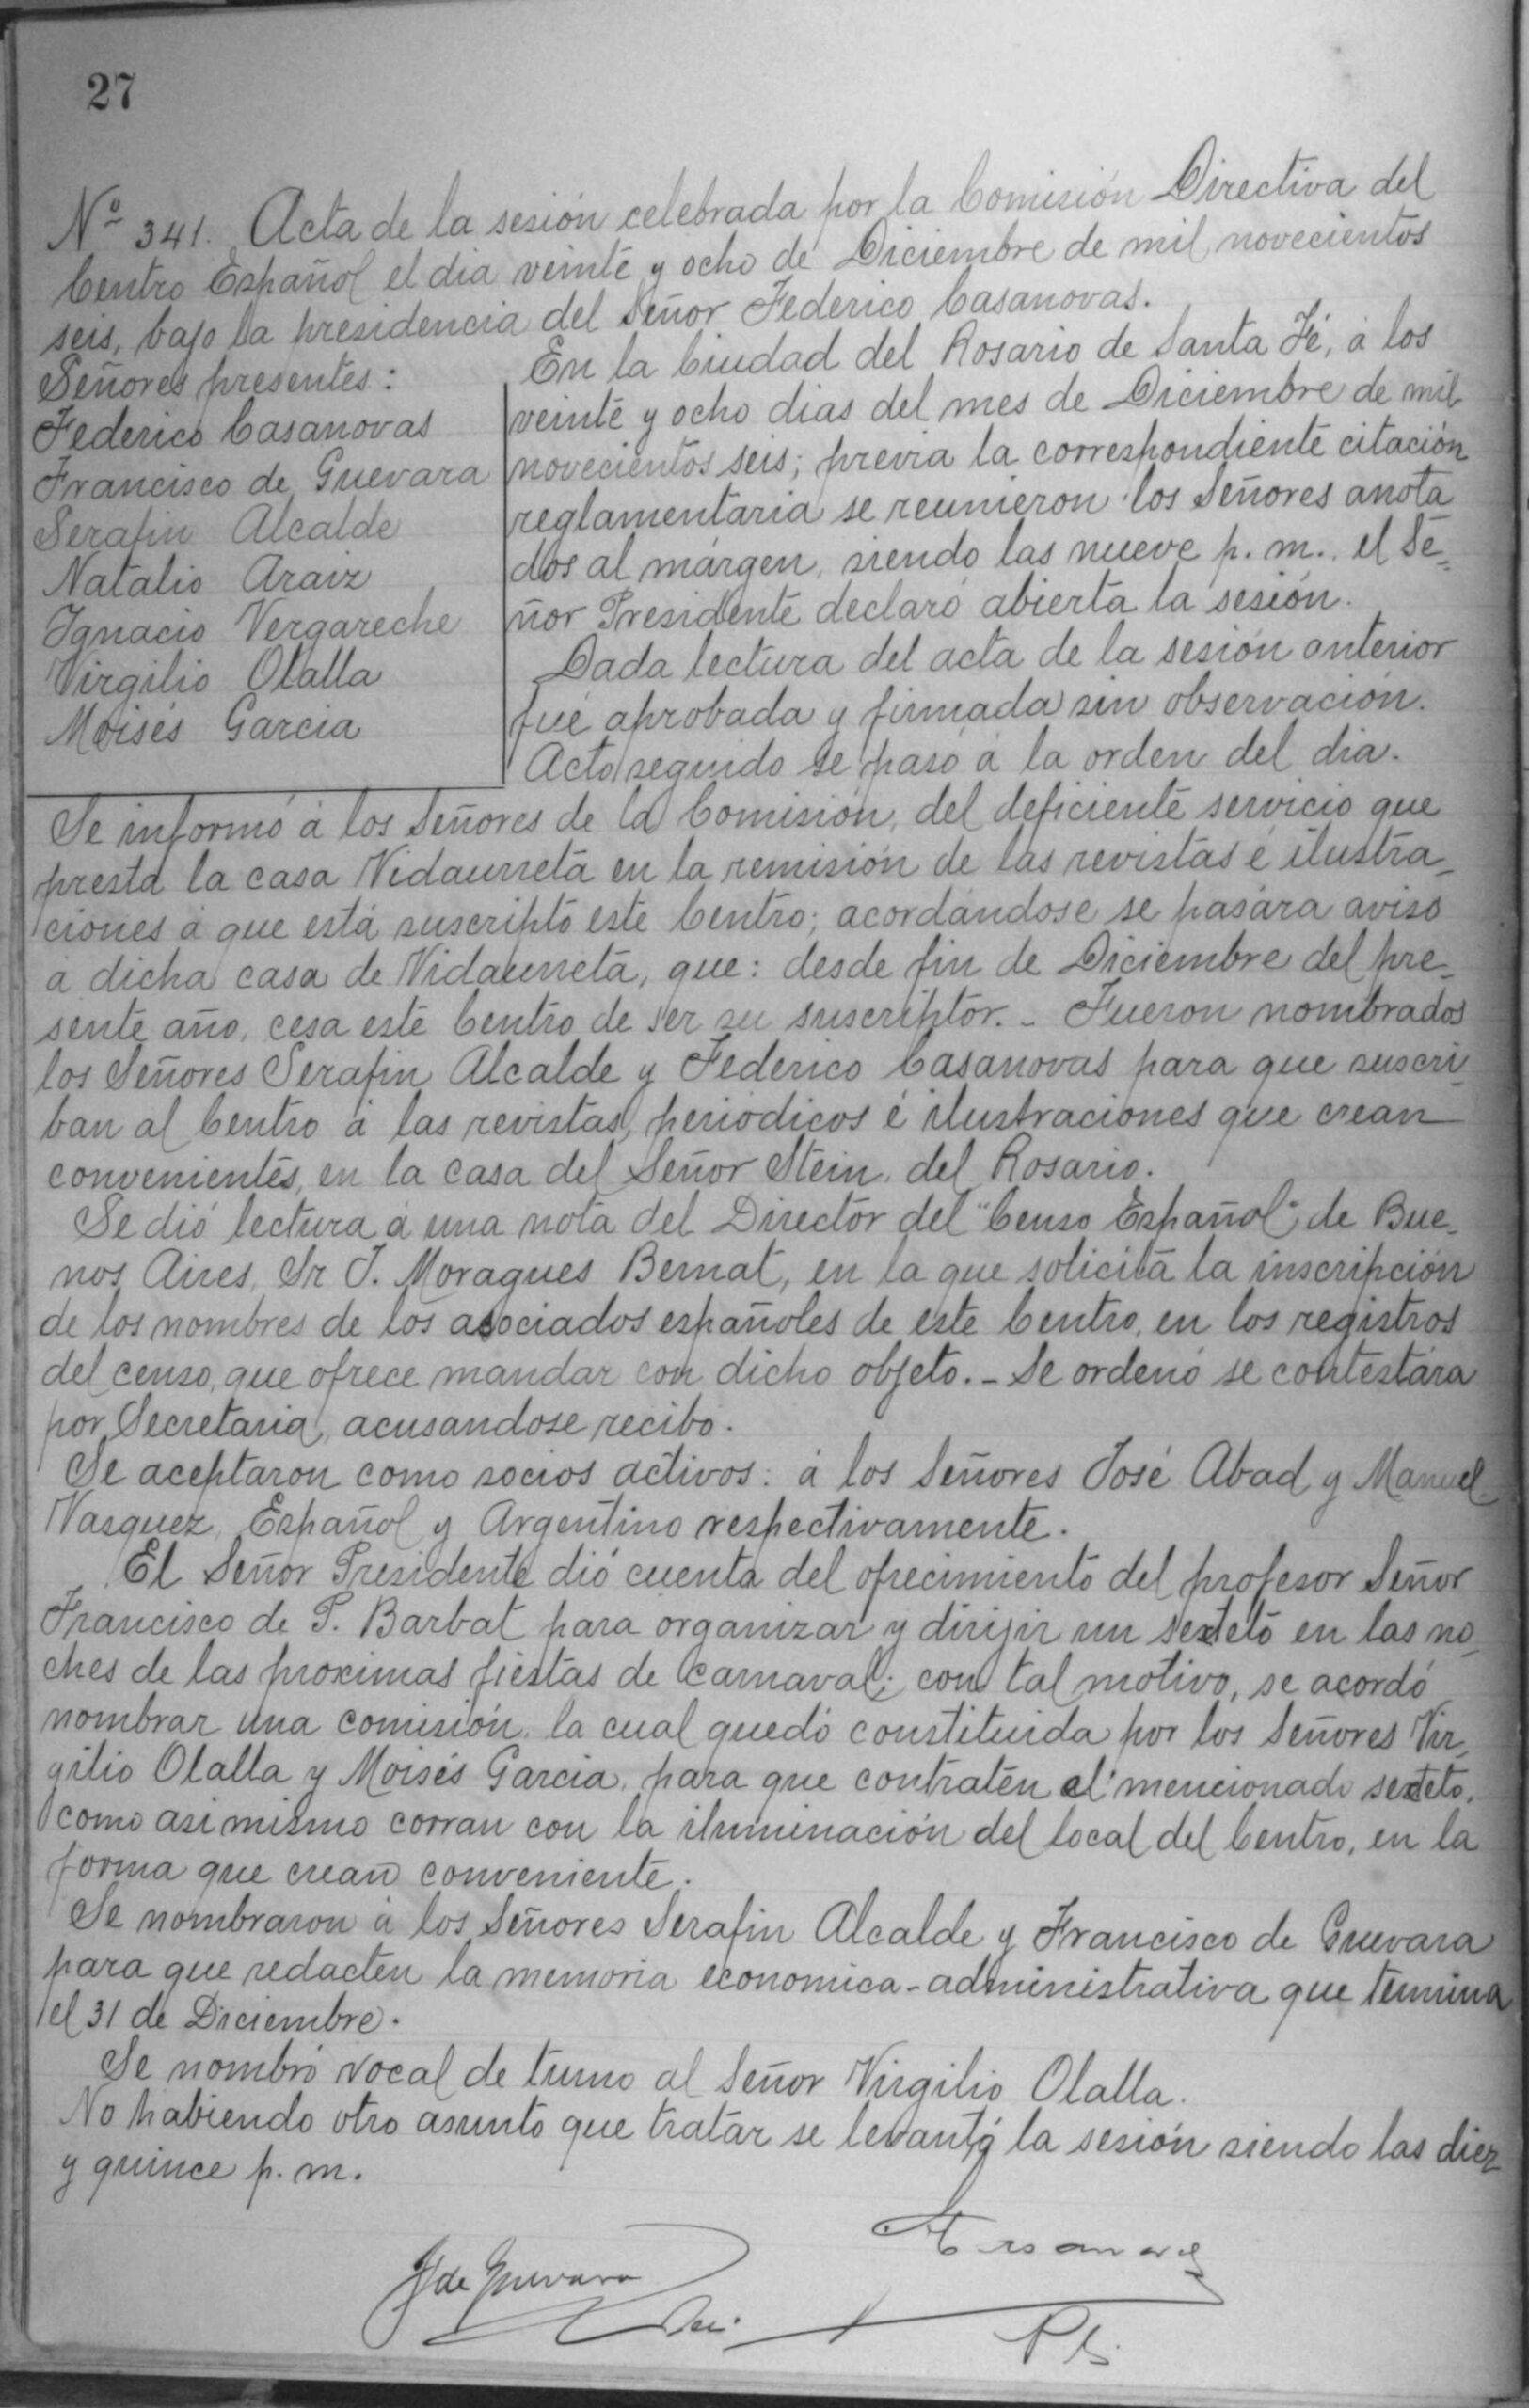 27
Nº 341. Acta de la sesión celebrada por la Comisión Directiva del
Centro Español el dia veinte y ocho de Diciembre de mil novecientos
seis, bajo la presidencia del Señor Federico Casanovas.
Señores presentes:
Federico Casanovas
Francisco de Guevara
Serafin Alcalde
Natalio Araiz
Ignacio Vergareche
Virgilio Olalla
Moisés Garcia
En la Ciudad del Rosario de Santa Fé, á los
veinte y ocho dias del mes de Diciembre de mil
novecientos seis; previa la correspondiente citación
reglamentaria se reunieron los Señores anota
dos al márgen, siendo las nueve p. m., el Se=
ñor Presidente declaró abierta la sesión.
Dada lectura del acta de la sesión anterior
fué aprobada y firmada sin observación.
Acto seguido se pasó á la orden del dia.
Se informó á los Señores de la Comisión, del deficiente servicio que
presta la casa Vidaurreta en la remisión de las revistas é ilustra_
ciones á que está suscripto este Centro; acordándose se pasára aviso
á dicha casa de Vidaurreta, que: desde fin de Diciembre del pre_
sente año, cesa este Centro de ser su suscriptor. _ Fueron nombrados
los Señores Serafin Alcalde y Federico Casanovas para que suscri_
ban al Centro á las revistas, periodicos é ilustraciones que crean
convenientes, en la casa del Señor Stein, del Rosario.
Se dió lectura á una nota del Director del "Censo Español" de Bue_
nos Aires, Sr J. Moragues Bernat, en la que solicita la inscripción
de los nombres de los asociados españoles de este Centro, en los registros
del censo, que ofrece mandar con dicho objeto. _ Se ordenó se contestára
por Secretaria, acusandose recibo.
Se aceptaron como socios activos: á los Señores José Abad y Manuel
Vasquez, Español y Argentino respectivamente.
El Señor Presidente dió cuenta del ofrecimiento del profesor Señor
Francisco de P. Barbat para organizar y dirijir un sexteto en las no_
ches de las proximas fiestas de Carnaval; con tal motivo, se acordó
nombrar una comisión, la cual quedó constituida por los Señores Vir_
gilio Olalla y Moisés Garcia, para que contraten el mencionado sexteto,
como asi mismo corran con la iluminación del local del Centro, en la
forma que crean conveniente.
Se nombraron á los Señores Serafin Alcalde y Francisco de Guevara
para que redacten la memoria economica-administrativa que termina
el 31 de Diciembre.
Se nombró vocal de turno al Señor Virgilio Olalla.
No habiendo otro asunto que tratar se levantó la sesión siendo las diez
y quince p. m.
F de Guevara